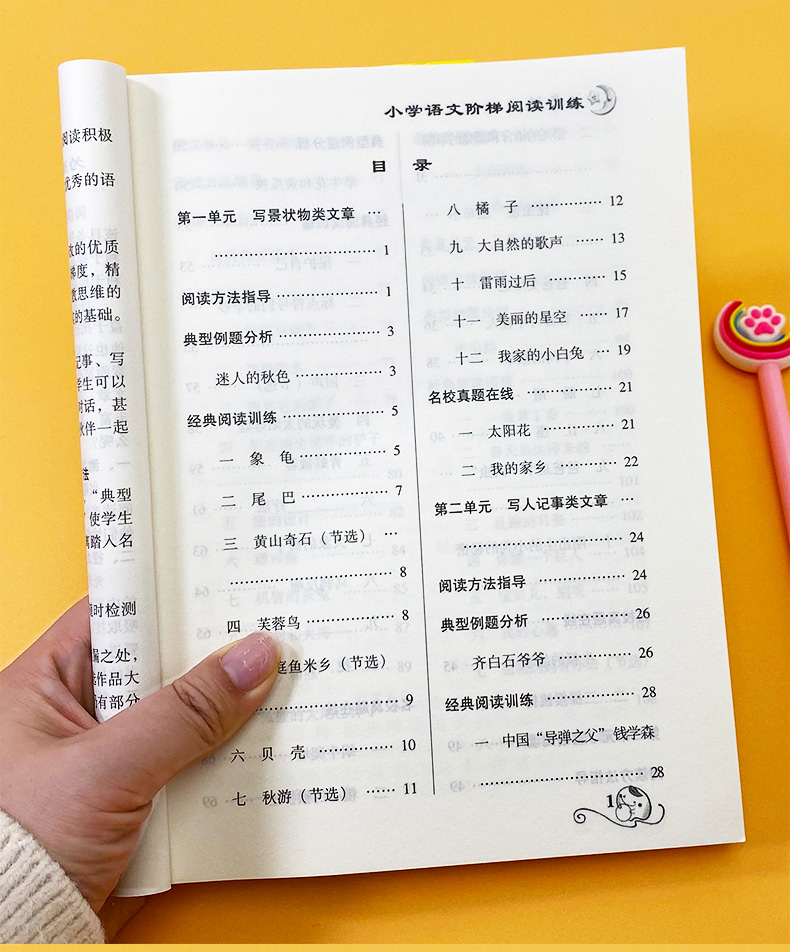 阅读积极
优秀的语
的优质
梯度，精
思维的
的基础。
记事、写
学生可以
对话，甚
伙伴一起
“典型
使学生
踏入名
随时检测
漏之处，
作品大
有部分
小学语文阶梯阅读训练
目 录
第一单元 写景状物类文章 …
……………………… 1
阅读方法指导 ……………… 1
典型例题分析 ……………… 3
迷人的秋色 ……………… 3
经典阅读训练 ……………… 5
一 象 龟 ……………… 5
二 尾 巴 ……………… 7
三 黄山奇石（节选） …
……………………… 8
四 芙蓉鸟 ……………… 8
庭鱼米乡（节选）
……………………… 9
六 贝 壳 ……………… 10
七 秋游（节选） …… 11
八 橘 子 ……………… 12
九 大自然的歌声 …… 13
十 雷雨过后 ………… 15
十一 美丽的星空 …… 17
十二 我家的小白兔 … 19
名校真题在线 ……………… 21
一 太阳花 …………… 21
二 我的家乡 ………… 22
第二单元 写人记事类文章 …
……………………… 24
阅读方法指导 ……………… 24
典型例题分析 ……………… 26
齐白石爷爷 …………… 26
经典阅读训练 ……………… 28
一 中国“导弹之父”钱学森
……………………… 28
1